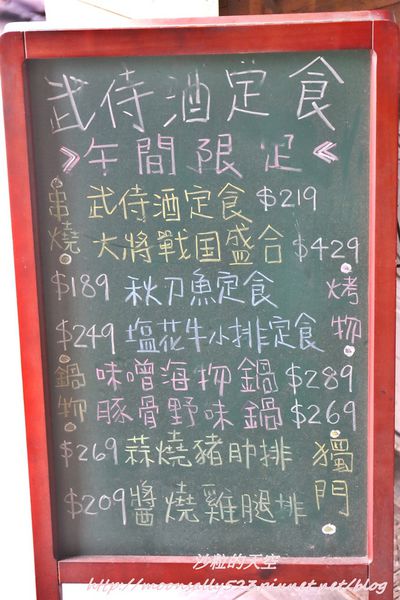 武侍酒定食
»午間限定«
串燒
武侍酒定食 $219
大將戰国盛合 $429
$189 秋刀魚定食
烤物
$249 塩花牛小排定食
鍋物
味噌海物鍋 $289
豚骨野味鍋 $269
$269 蒜燒豬肋排
獨門
$209 醬燒雞腿排
沙粒的天空
http://moonsally523.pixnet.net/blog